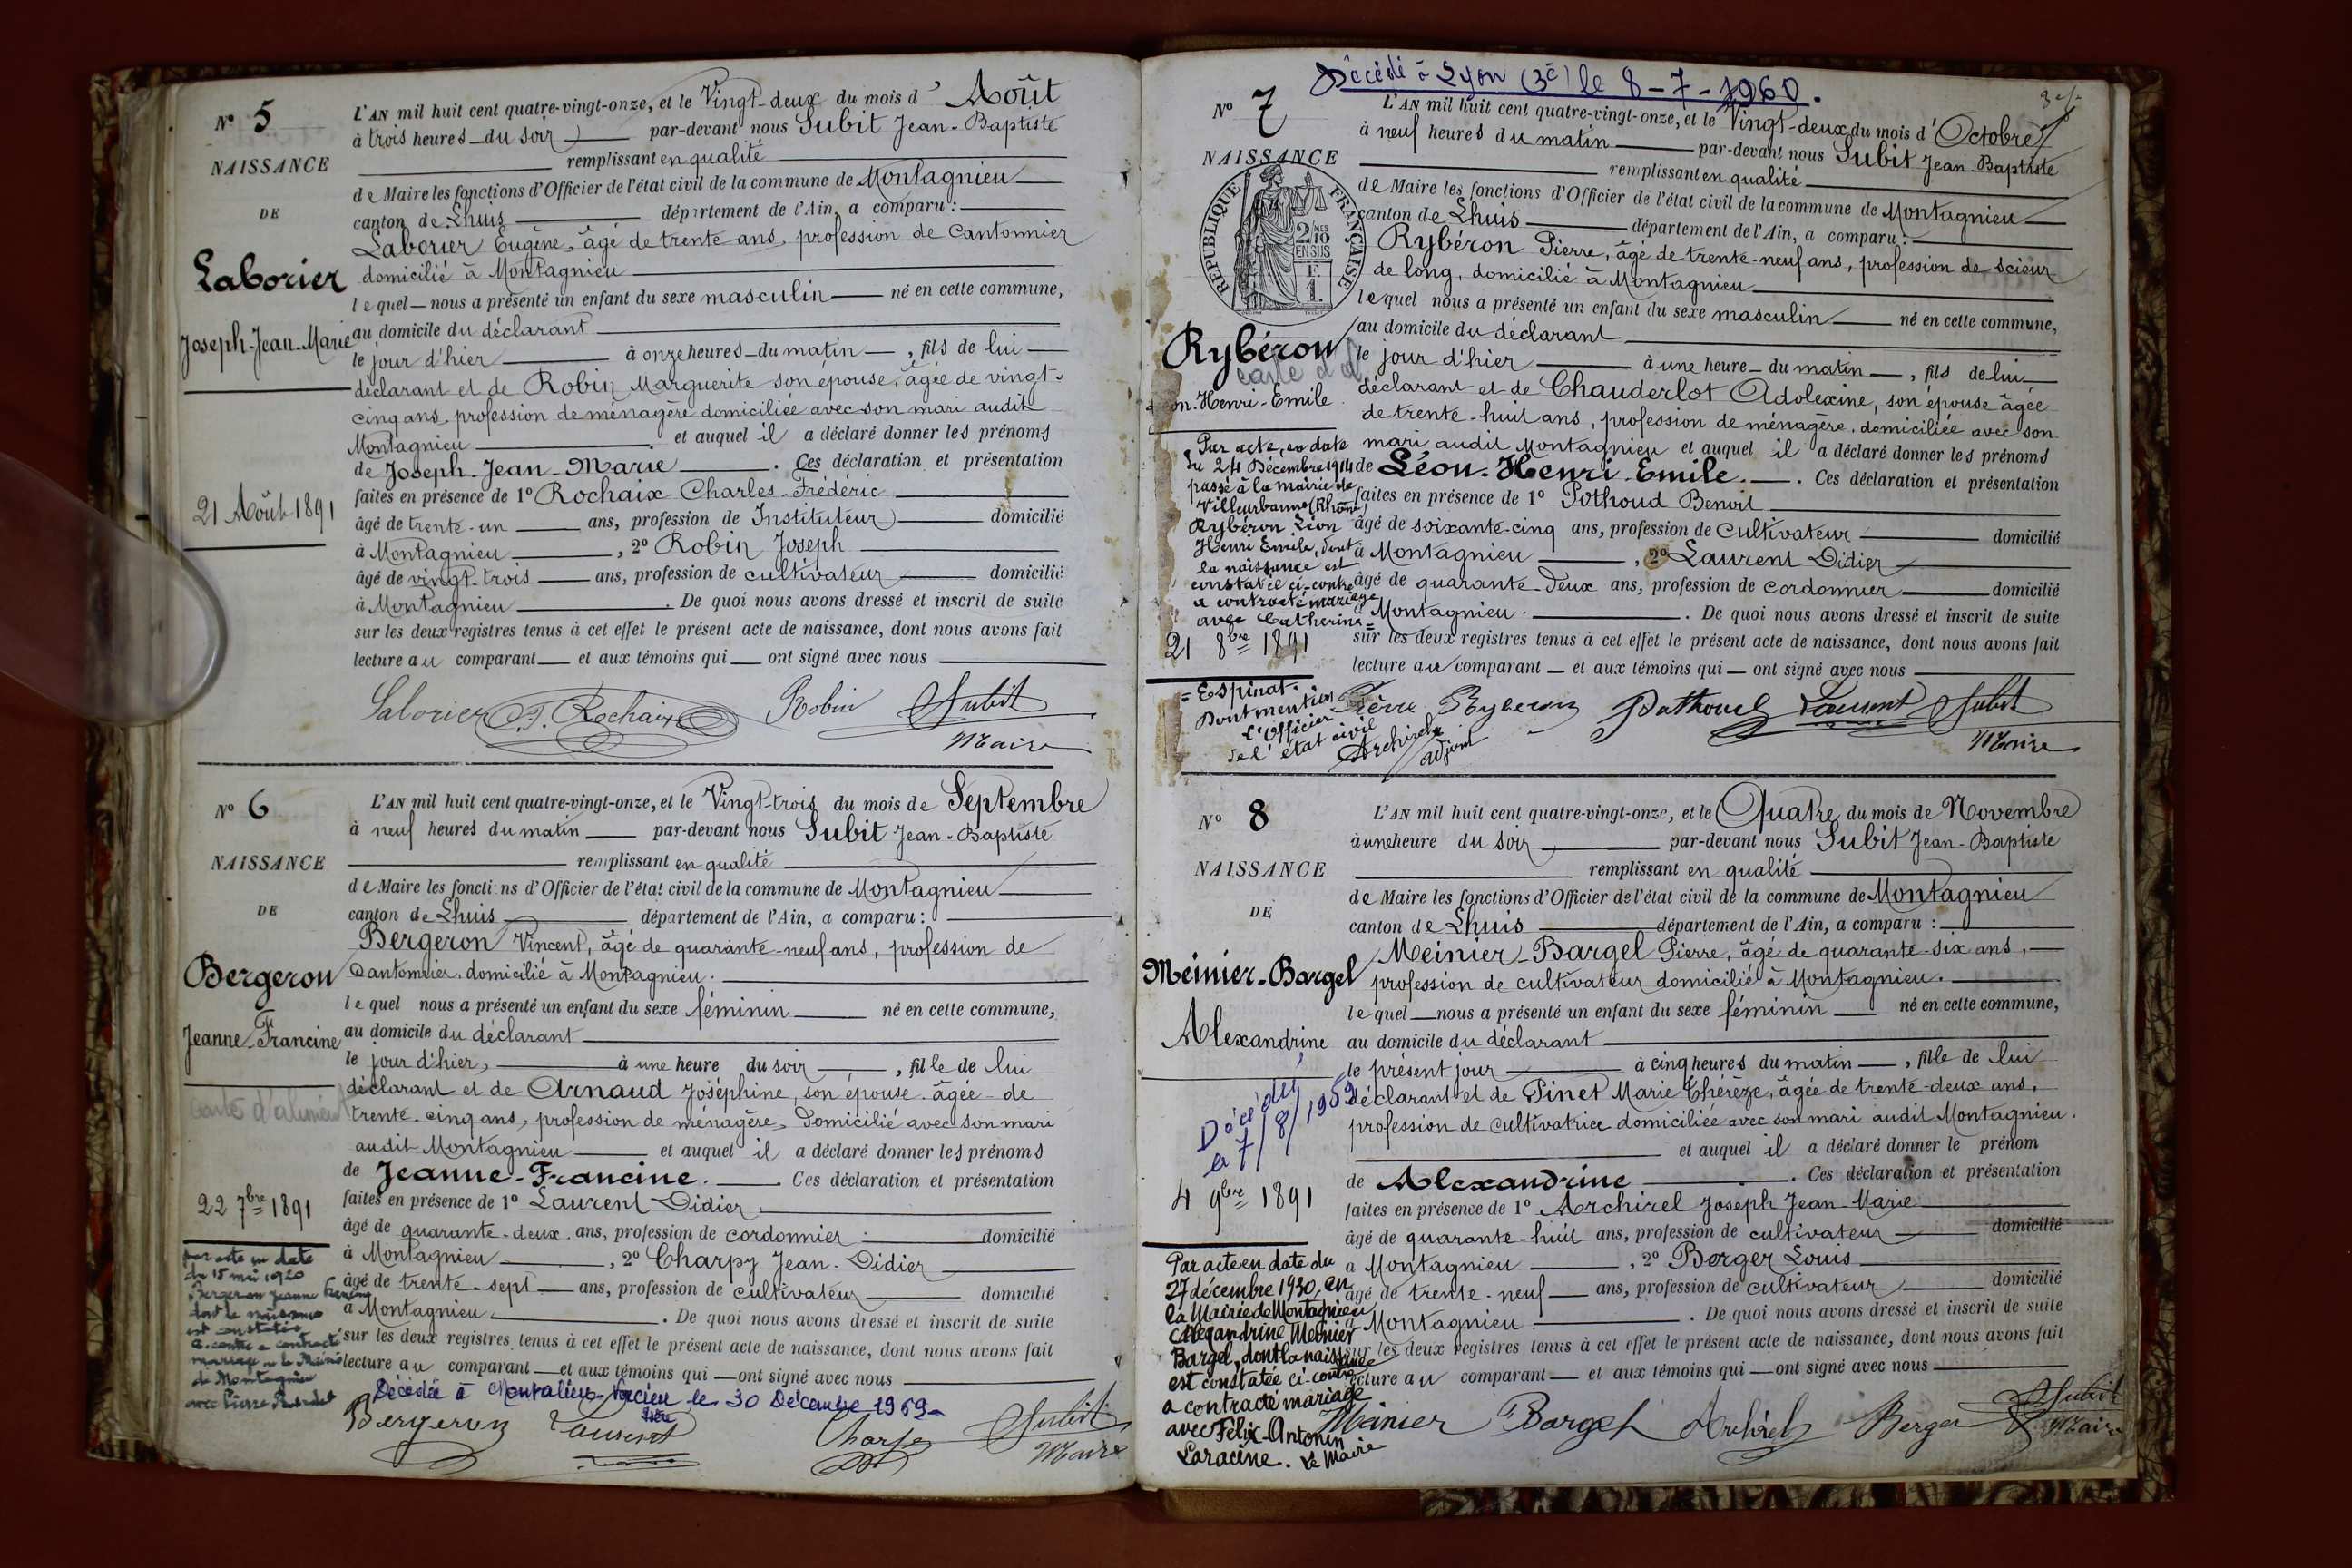 N° 5
NAISSANCE
DE
Laborier
Joseph-Jean-Marie
21 Août 1891
L'AN mil huit cent quatre-vingt-onze, et le Vingt-deux du mois d'Août
à trois heures du soir par-devant nous Subit Jean-Baptiste
remplissant en qualité
de Maire les fonctions d'Officier de l'état civil de la commune de Montagnieu
canton de Lhuis département de l'Ain, a comparu :
Laborier Eugène, âgé de trente ans, profession de Cantonnier
domicilié à Montagnieu
lequel nous a présenté un enfant du sexe masculin né en cette commune,
au domicile du déclarant
le jour d'hier à onze heures du matin, fils de lui
déclarant et de Robin Marguerite son épouse, âgée de vingt-
cinq ans, profession de ménagère domiciliée avec son mari audit
Montagnieu et auquel il a déclaré donner les prénoms
de Joseph-Jean-Marie. Ces déclaration et présentation
faites en présence de 1° Rochaix Charles-Frédéric
âgé de trente-un ans, profession de Instituteur domicilié
à Montagnieu, 2° Robin Joseph
âgé de vingt-trois ans, profession de cultivateur domicilié
à Montagnieu. De quoi nous avons dressé et inscrit de suite
sur les deux registres tenus à cet effet le présent acte de naissance, dont nous avons fait
lecture au comparant et aux témoins qui ont signé avec nous
Laborier F. Rochaix Robin Subit
Maire
N° 6
NAISSANCE
DE
Bergeron
Jeanne-Francine
carte d'aliment
22 7bre 1891
par acte en date
du 15 mai 1920
Bergeron Jeanne Francine
dont la naissance
est constatée
ci-contre a contracté
mariage à la Mairie
de Montagnieu
avec Pierre
L'AN mil huit cent quatre-vingt-onze, et le Vingt-trois du mois de Septembre
à neuf heures du matin par-devant nous Subit Jean-Baptiste
remplissant en qualité
de Maire les fonctions d'Officier de l'état civil de la commune de Montagnieu
canton de Lhuis département de l'Ain, a comparu :
Bergeron Vincent, âgé de quarante-neuf ans, profession de
Cantonnier, domicilié à Montagnieu.
lequel nous a présenté un enfant du sexe féminin né en cette commune,
au domicile du déclarant
le jour d'hier, à une heure du soir, fille de lui
déclarant et de Arnaud Joséphine, son épouse âgée de
trente-cinq ans, profession de ménagère, Domicilié avec son mari
audit Montagnieu et auquel il a déclaré donner les prénoms
de Jeanne-Francine. Ces déclaration et présentation
faites en présence de 1° Laurent Didier
âgé de quarante-deux ans, profession de cordonnier domicilié
à Montagnieu, 2° Charpy Jean-Didier
âgé de trente-sept ans, profession de cultivateur domicilié
à Montagnieu. De quoi nous avons dressé et inscrit de suite
sur les deux registres tenus à cet effet le présent acte de naissance, dont nous avons fait
lecture au comparant et aux témoins qui ont signé avec nous
Décédée à Montalieu-Vercieu le 30 Décembre 1969
Isère
Bergeron Laurent Charpy Subit
Maire
Décédé à Lyon (3è) le 8-7-1960.
N° 7
NAISSANCE
REPUBLIQUE FRANÇAISE
2 MES
10
EN SUS
F.
1.
Rybéron
Léon-Henri-Emile
Par acte, en date
du 24 Décembre 1914
passé à la mairie de
Villeurbanne (Rhône)
Rybéron Léon
Henri Emile, dont
la naissance est
constatée ci-contre
a contracté mariage
avec Catherine
21 8bre 1891
Espinat.
Dont mention
L'Officier
de l'état civil
Archirel
adjoint
L'AN mil huit cent quatre-vingt-onze, et le Vingt-deux du mois d'Octobre
à neuf heures du matin par-devant nous Subit Jean-Baptiste
remplissant en qualité
de Maire les fonctions d'Officier de l'état civil de la commune de Montagnieu
canton de Lhuis département de l'Ain, a comparu :
Rybéron Pierre, âgé de trente-neuf ans, profession de scieur
de long, domicilié à Montagnieu
lequel nous a présenté un enfant du sexe masculin né en cette commune,
au domicile du déclarant
le jour d'hier à une heure du matin, fils de lui
déclarant et de Chauderlot Adolexine, son épouse âgée
de trente-huit ans, profession de ménagère, domiciliée avec son
mari audit Montagnieu et auquel il a déclaré donner les prénoms
de Léon-Henri-Emile. Ces déclaration et présentation
faites en présence de 1° Pothoud Benoit
âgé de soixante-cinq ans, profession de cultivateur domicilié
à Montagnieu, 2° Laurent Didier
âgé de quarante-deux ans, profession de cordonnier domicilié
à Montagnieu. De quoi nous avons dressé et inscrit de suite
sur les deux registres tenus à cet effet le présent acte de naissance, dont nous avons fait
lecture au comparant et aux témoins qui ont signé avec nous
Pierre Ryberon Pothoud Laurent Subit
Maire
N° 8
NAISSANCE
DE
Meinier-Bargel
Alexandrine
Décédée
le 7/8/1959
4 9bre 1891
Par acte en date du
27 décembre 1930, en
la Mairie de Montagnieu
Alexandrine Meinier
Bargel, dont la naissance
est constatée ci-contre
a contracté mariage
avec Félix-Antonin
Laracine. Le Maire
L'AN mil huit cent quatre-vingt-onze, et le Quatre du mois de Novembre
à une heure du soir par-devant nous Subit Jean-Baptiste
remplissant en qualité
de Maire les fonctions d'Officier de l'état civil de la commune de Montagnieu
canton de Lhuis département de l'Ain, a comparu :
Meinier-Bargel Pierre, âgé de quarante-six ans,
profession de cultivateur domicilié à Montagnieu.
lequel nous a présenté un enfant du sexe féminin né en cette commune,
au domicile du déclarant
le présent jour à cinq heures du matin, fille de lui
déclarant et de Pinet Marie Thérèze, âgée de trente-deux ans,
profession de cultivatrice domiciliée avec son mari audit Montagnieu.
et auquel il a déclaré donner le prénom
de Alexandrine. Ces déclaration et présentation
faites en présence de 1° Archirel Joseph Jean-Marie
âgé de quarante-huit ans, profession de cultivateur domicilié
à Montagnieu, 2° Berger Louis
âgé de trente-neuf ans, profession de cultivateur domicilié
à Montagnieu. De quoi nous avons dressé et inscrit de suite
sur les deux registres tenus à cet effet le présent acte de naissance, dont nous avons fait
lecture au comparant et aux témoins qui ont signé avec nous
Meinier Bargel Archirel Berger Subit
Maire